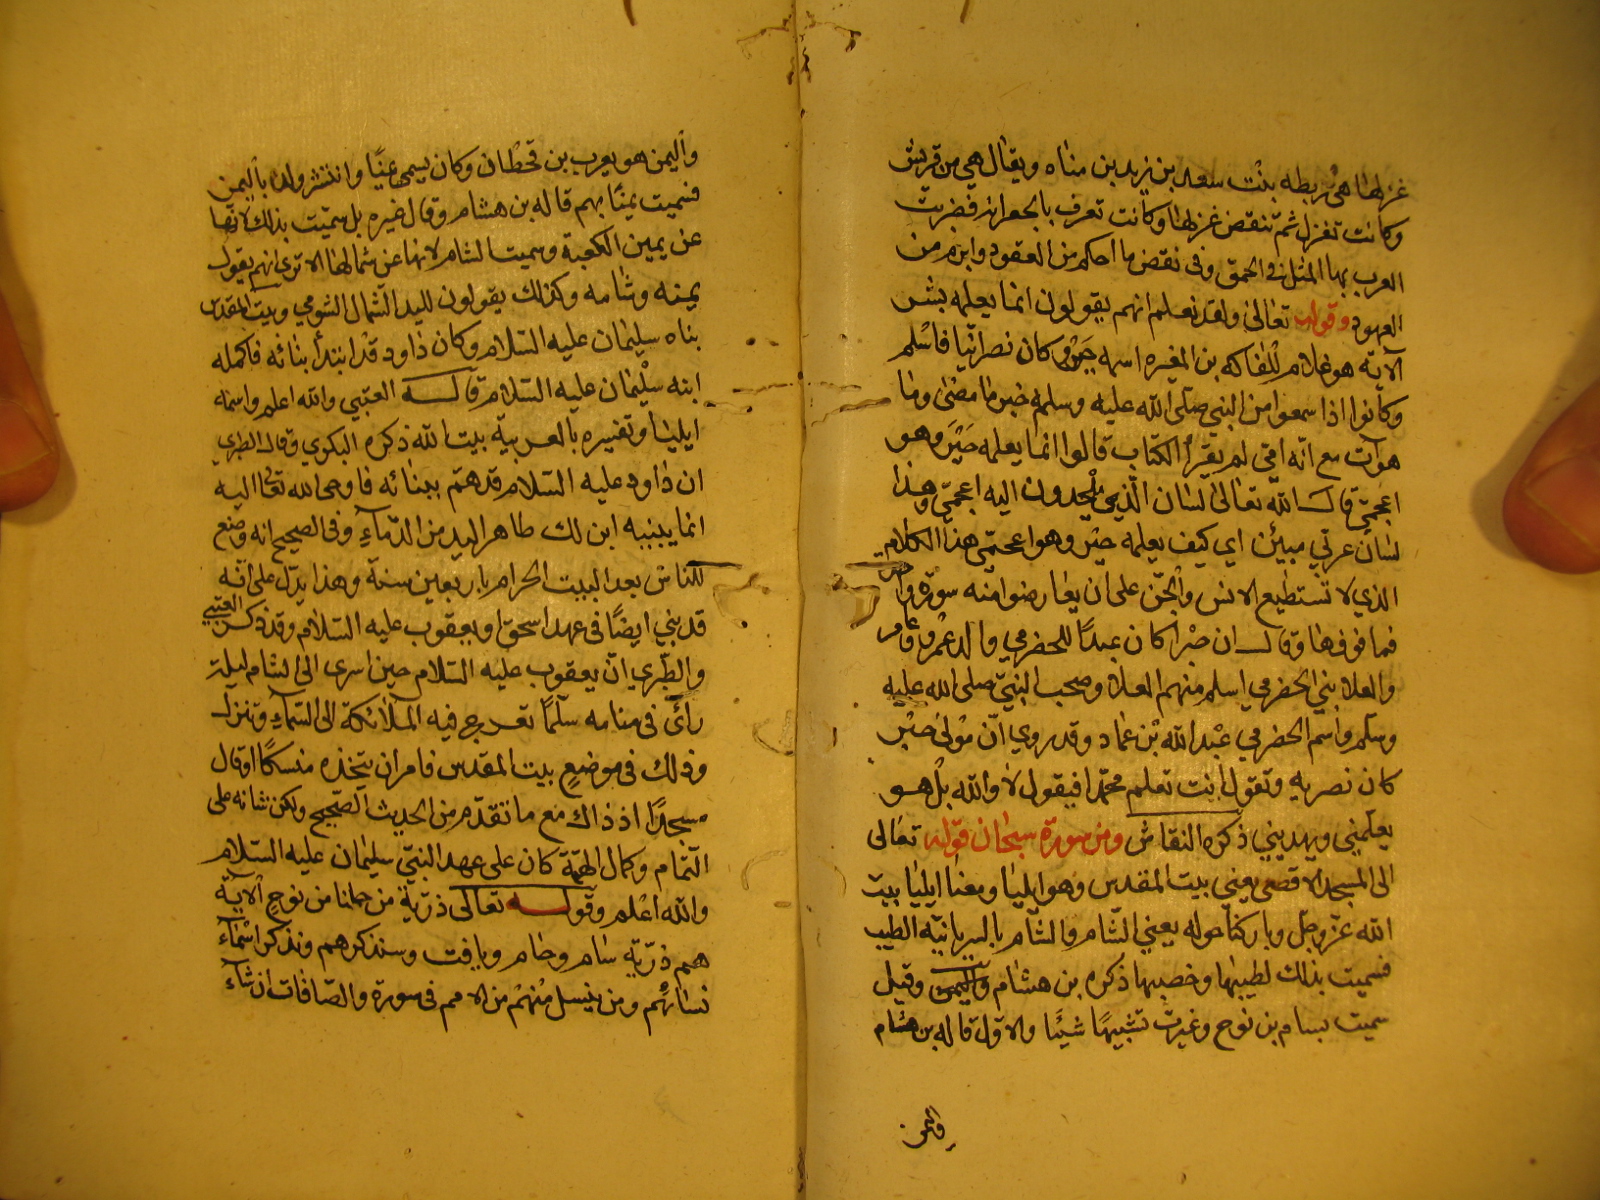 غزلها هي ربطه بنت سعد بن زيد بن مناه ويقال هي من قريش
وكانت تغزل ثم تنقض غزلها وكانت تعرف بالجعرانه فضربت
العرب بها المثل في الحمق وفي نقض ما احكم من العقود وابرم من
العهود وقوله تعالى ولقد نعلم انهم يقولون انما يعلمه بشر
الآية هو غلام للفاكه بن المغيره اسمه جبر وكان نصرانيا فاسلم
وكانوا اذا سمعوا من النبي صلى الله عليه وسلم خبر ما مضى وما
هو آت مع انه امي لم يقرأ الكتاب قالوا انما يعلمه جبر وهو
اعجمي قال الله تعالى لسان الذي يلحدون اليه اعجمي وهذا
لسان عربي مبين اي كيف يعلمه جبر وهو اعجمي هذا الكلام
الذي لا تستطيع الانس والجن على ان يعارضوا منه سورة واحده
فما فوقها وقال ان جبرا كان عبدا للحضرمي والد عمرو وعامر
والعلا بني الحضرمي اسلم منهم العلا وصحب النبي صلى الله عليه
وسلم واسم الحضرمي عبد الله بن عماد وقد روي ان مولى جبر
كان نصر به وتقول انت تعلم محمدا فيقول لا والله بل هو
يعلمني ويهديني ذكره النقاش ومن سورة سبحان قوله تعالى
الى المسجد الاقصى يعني بيت المقدس وهو ايليا ومعنا ايليا بيت
الله عز وجل وباركنا حوله يعني الشام والشام بالسريانية الطيب
فسميت بذلك لطيبها وخصبها ذكره بن هشام واليمن وقيل
سميت بسام بن نوح وغيرت تشبيها شينا والاول قاله بن هشام
واليمن
واليمن هو يعرب بن قحطان وكان يسمى يمنا وانتشر ولده باليمن
فسميت يمنا بهم قاله بن هشام وقال غيره بل سميت بذلك لانها
عن يمين الكعبة وسميت الشام لانها عن شمالها الا ترى انهم يقولون
يمنه وشامه وكذلك يقولون لليد الشمال الشومي وبيت المقدس
بناه سليمان عليه السلام وكان داود قد ابتدأ بنائه فاكمله
ابنه سليمان عليه السلام قاله العتبي والله اعلم واسمه
ايليا وتفسيره بالعربية بيت الله ذكره البكري وقال الطبري
ان داود عليه السلام قد هم ببنائه فاوحى الله تعالى اليه
انما يبنيه ابن لك طاهر اليد من الدماء وفي الصحيح انه وضع
للناس بعد البيت الحرام باربعين سنة وهذا يدل على انه
قد بني ايضا في عهد اسحق او يعقوب عليه السلام وقد ذكر العتبي
والطبري ان يعقوب عليه السلام حين اسرى الى الشام ليلة
رأى في منامه سلما تعرج فيه الملائكة الى السماء وتنزل
وذلك في موضع بيت المقدس فامر ان يتخذه منسكا او قال
مسجدا اذ ذاك مع ما تقدم من الحديث الصحيح ولكن شانه على
التمام وكمال الهمة كان على عهد النبي سليمان عليه السلام
والله اعلم وقوله تعالى ذرية من حملنا من نوح الآية
هم ذرية سام وحام ويافت وسنذكرهم ونذكر اسماء
نسائهم ومن ينسل منهم من الامم في سورة والصافات ان شاء